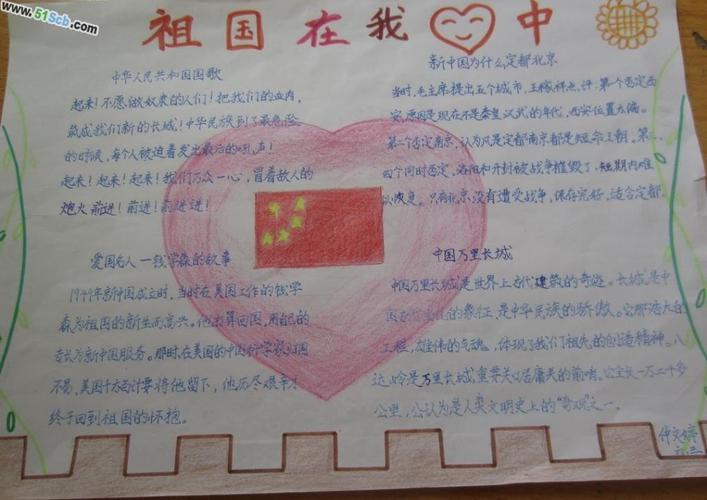 www.51Scb.com
祖国在我中
中华人民共和国国歌
起来!不愿做奴隶的人们!把我们的血肉,
筑成我们新的长城!中华民族到了最危险
的时候,每个人被迫着发出最后的吼声!
起来!起来!起来!我们万众一心,冒着敌人的
炮火前进!前进!前进进!
爱国名人—钱学森的故事
1949年新中国成立时,当时在美国工作的钱学
森为祖国的新生而高兴。他打算回国,用自己的
专长为新中国服务。那时,在美国的中国科学家归国
不易,美国千方百计要将他留下,他历尽艰辛才
终于回到祖国的怀抱。
新中国为什么定都北京
当时,毛主席提出五个城市,王稼祥点评:第一个否定西
安,原因是现在不是秦皇汉武的年代,西安位置太偏。
第二个否定南京,认为凡是定都南京都是短命王朝,第三、
四个同时否定,洛阳和开封被战争摧毁了,短期内难
以恢复。只有北京,没有遭受战争,保存完好,适合定都。
中国万里长城
中国万里长城是世界上古代建筑的奇迹。长城是中
国的象征,是中华民族的骄傲。它那浩大的
工程,雄伟的气魂,体现了我们祖先的创造精神。八
达岭是万里长城重要关口居庸关的前哨。它全长一万二千多
公里,公认为是人类文明史上的“奇观”之一。
仲文婷
六三